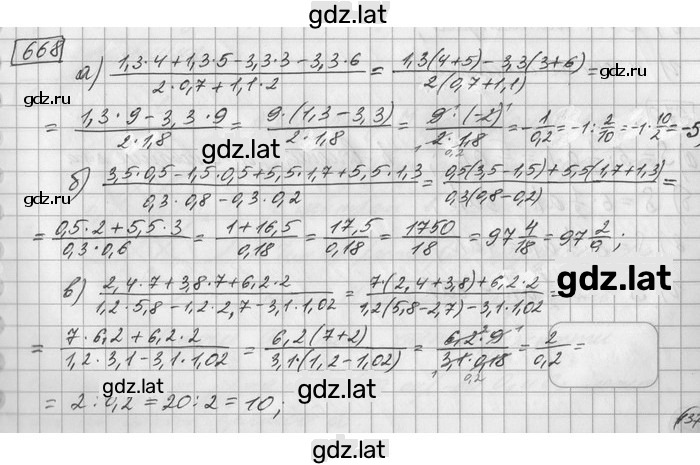 gdz.lat
668
а) (1,3·4+1,3·5−3,3·3−3,3·6)/(2·0,7+1,1·2) = (1,3(4+5)−3,3(3+6))/(2(0,7+1,1)) =
gdz.lat gdz.lat
= (1,3·9−3,3·9)/(2·1,8) = (9·(1,3−3,3))/(2·1,8) = (9·(−2))/(2·1,8) = −1/0,2 = −1:2/10 = −1·10/2 = −5,
gdz.lat
б) (3,5·0,5−1,5·0,5+5,5·1,7+5,5·1,3)/(0,3·0,8−0,3·0,2) = (0,5(3,5−1,5)+5,5(1,7+1,3))/(0,3(0,8−0,2)) =
gdz.lat gdz.lat
= (0,5·2+5,5·3)/(0,3·0,6) = (1+16,5)/0,18 = 17,5/0,18 = 1750/18 = 97 4/18 = 97 2/9;
gdz.lat gdz.lat
в) (2,4·7+3,8·7+6,2·2)/(1,2·5,8−1,2·2,7−3,1·1,02) = (7·(2,4+3,8)+6,2·2)/(1,2(5,8−2,7)−3,1·1,02) =
= (7·6,2+6,2·2)/(1,2·3,1−3,1·1,02) = (6,2(7+2))/(3,1·(1,2−1,02)) = (6,2·9)/(3,1·0,18) = 2/0,2 =
gdz.lat gdz.lat
= 2:0,2 = 20:2 = 10;
gdz.lat